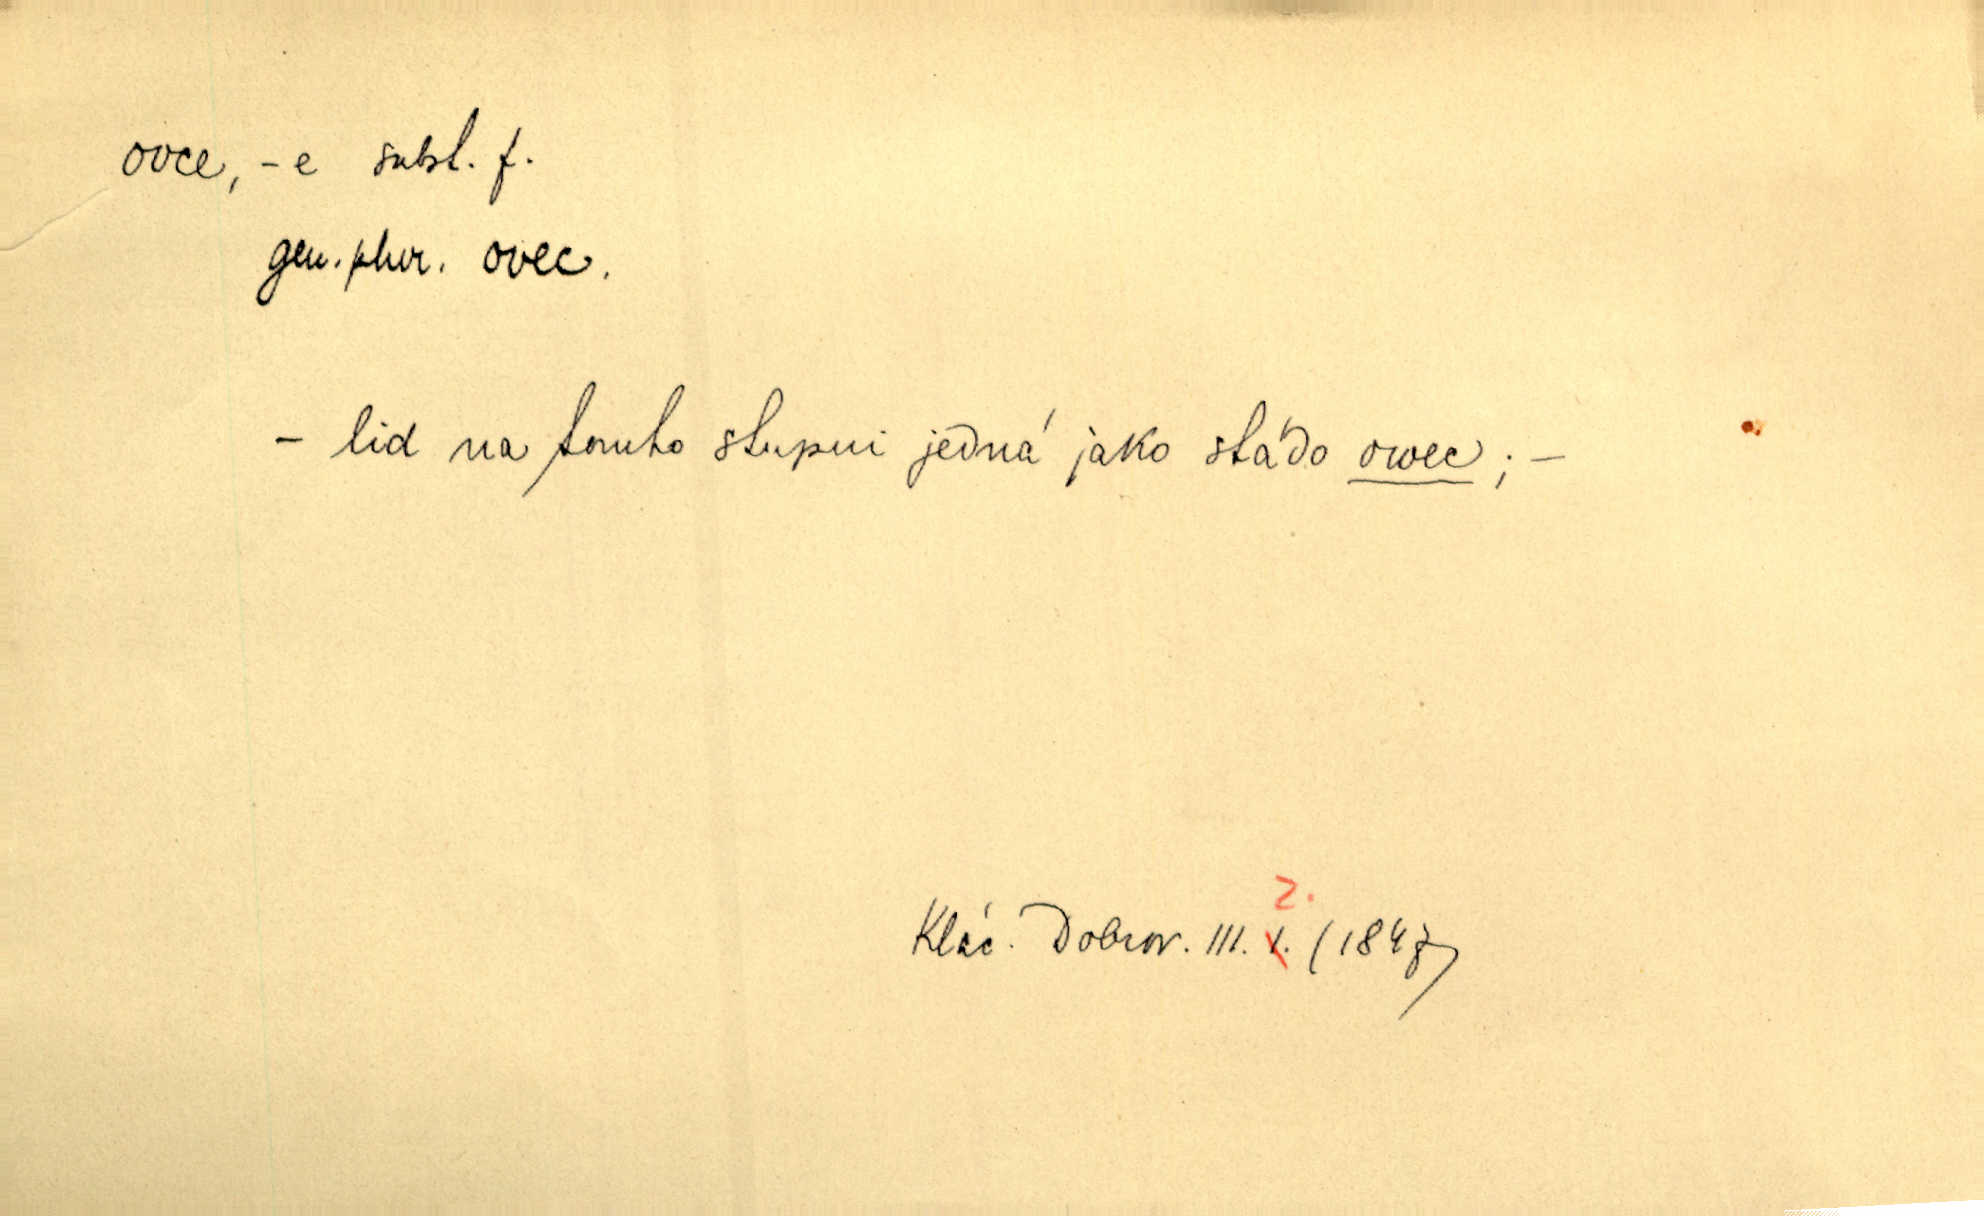 ovce, -e subst. f.
gen. plur. ovec.
- lid na tomto stupni jedná jako stádo owec; -
2.
Klác. Dobrov. III. 1. (1847)